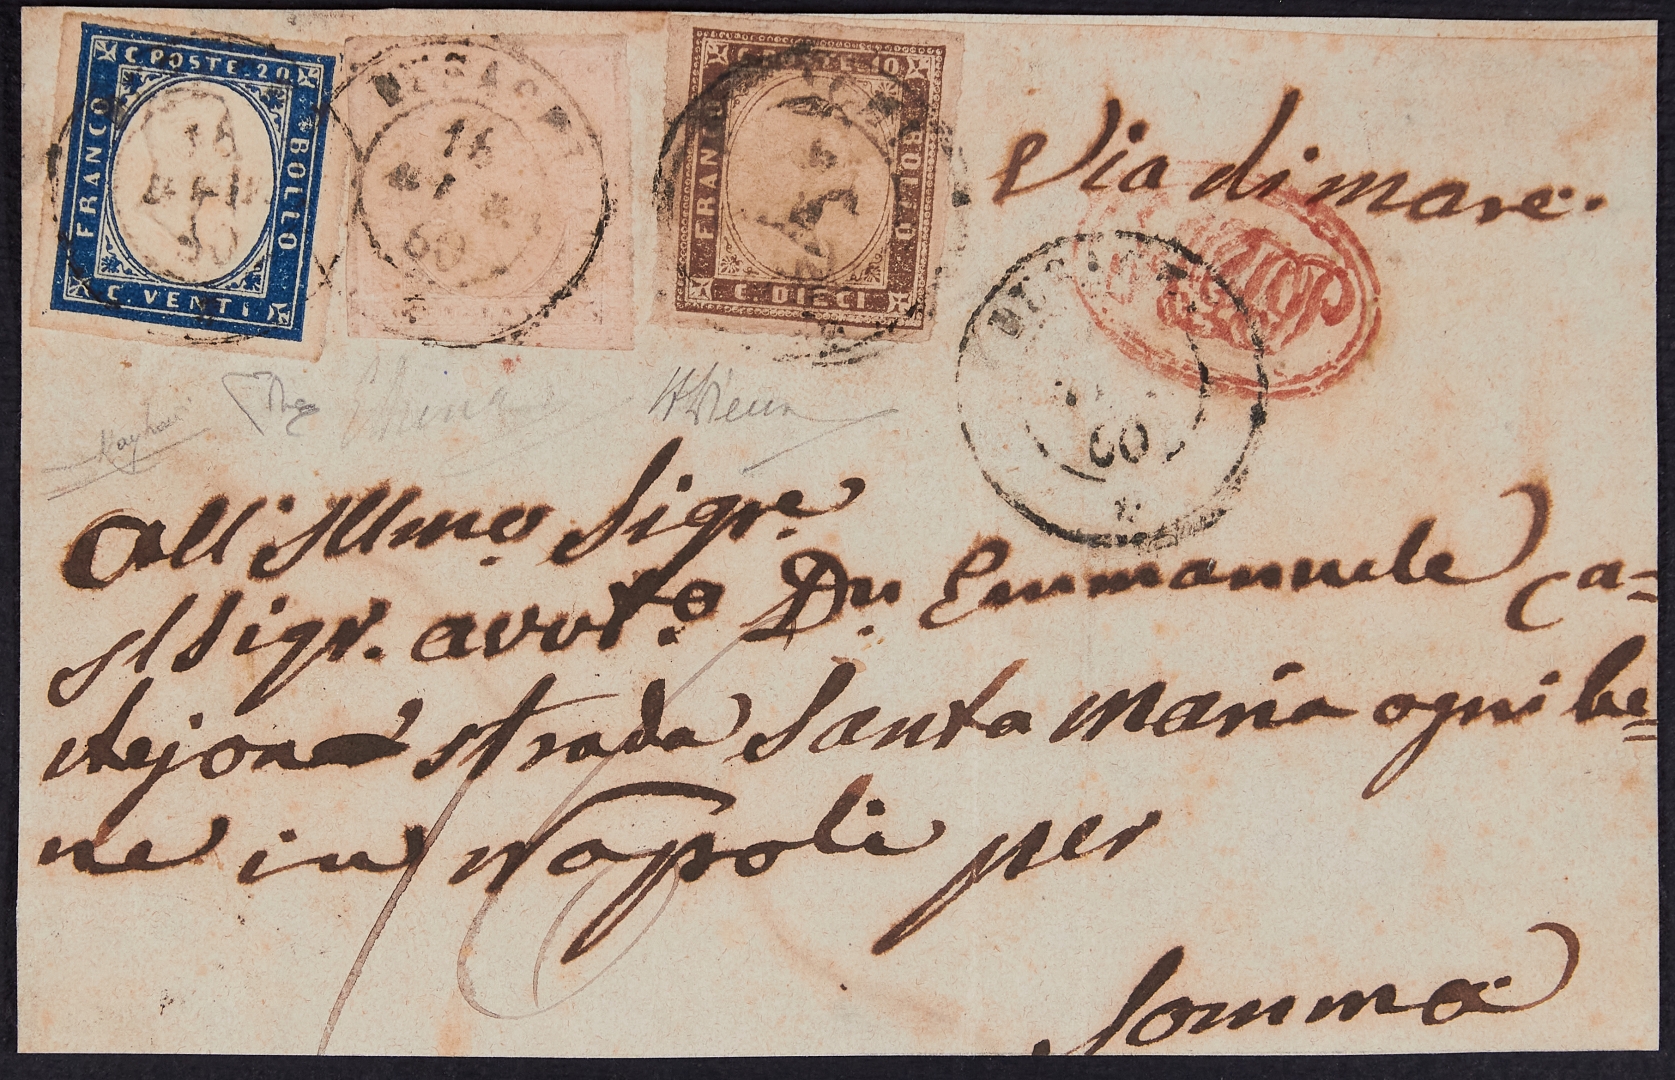 C. POSTE 20
FRANCO
BOLLO
C. VENTI
16
60
16
60
C. POSTE 10
FRANCO
BOLLO
C. DIECI
Via di mare.
60
All' Illmo. Sigre.
Il Sigr. avvto. Dn. Emmanuele Ca=
strada Santa Maria ogni be=
ne in Napoli per
Somma